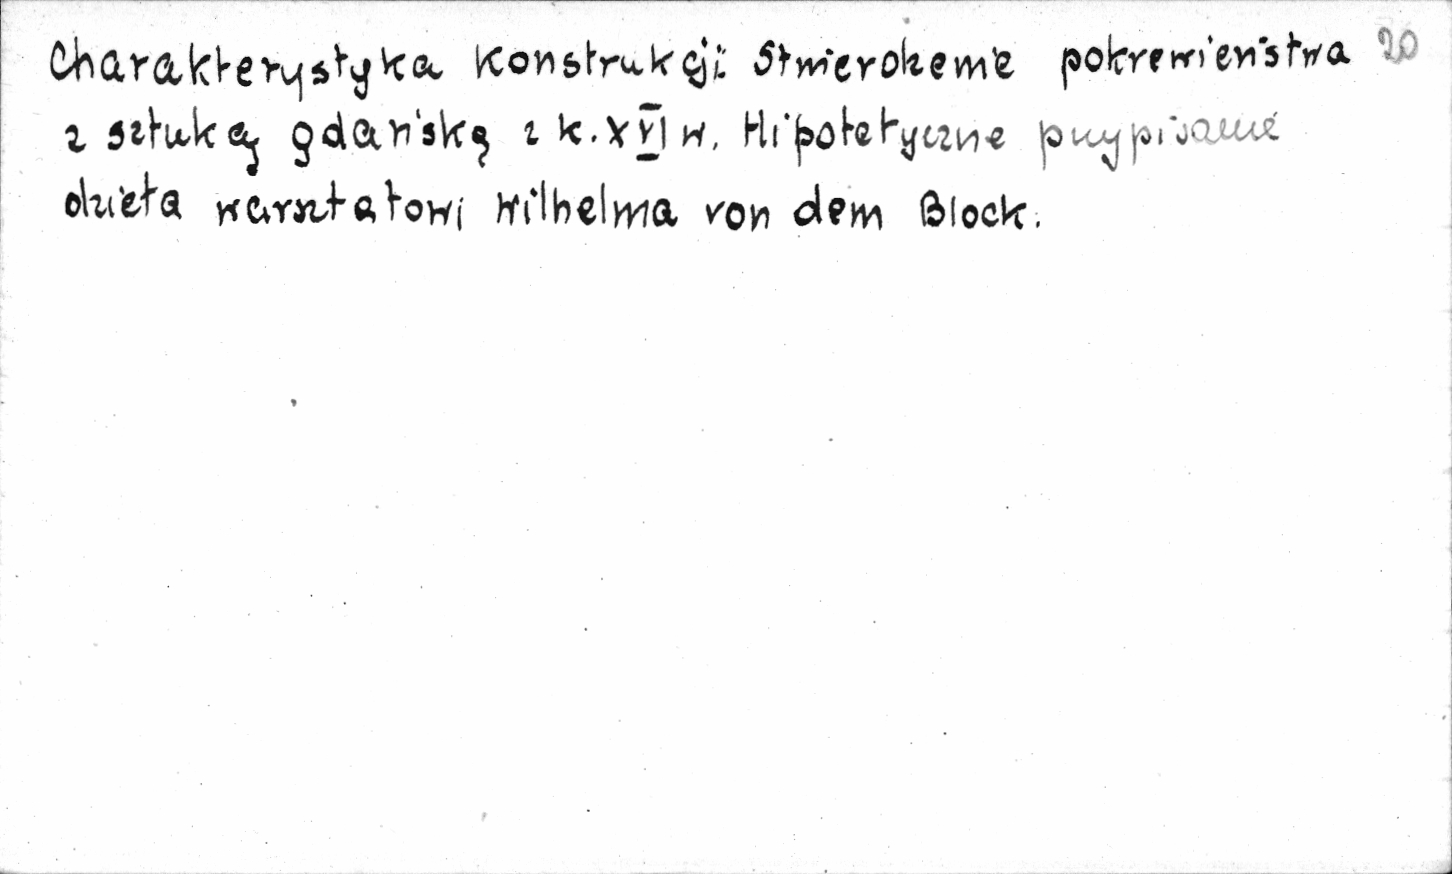 Charakterystyka konstrukcji. Stwierdzenie pokrewieństwa 20
z sztuką gdańską z k. XVI w. Hipotetyczne przypisanie
dzieła warsztatowi Wilhelma von dem Block.